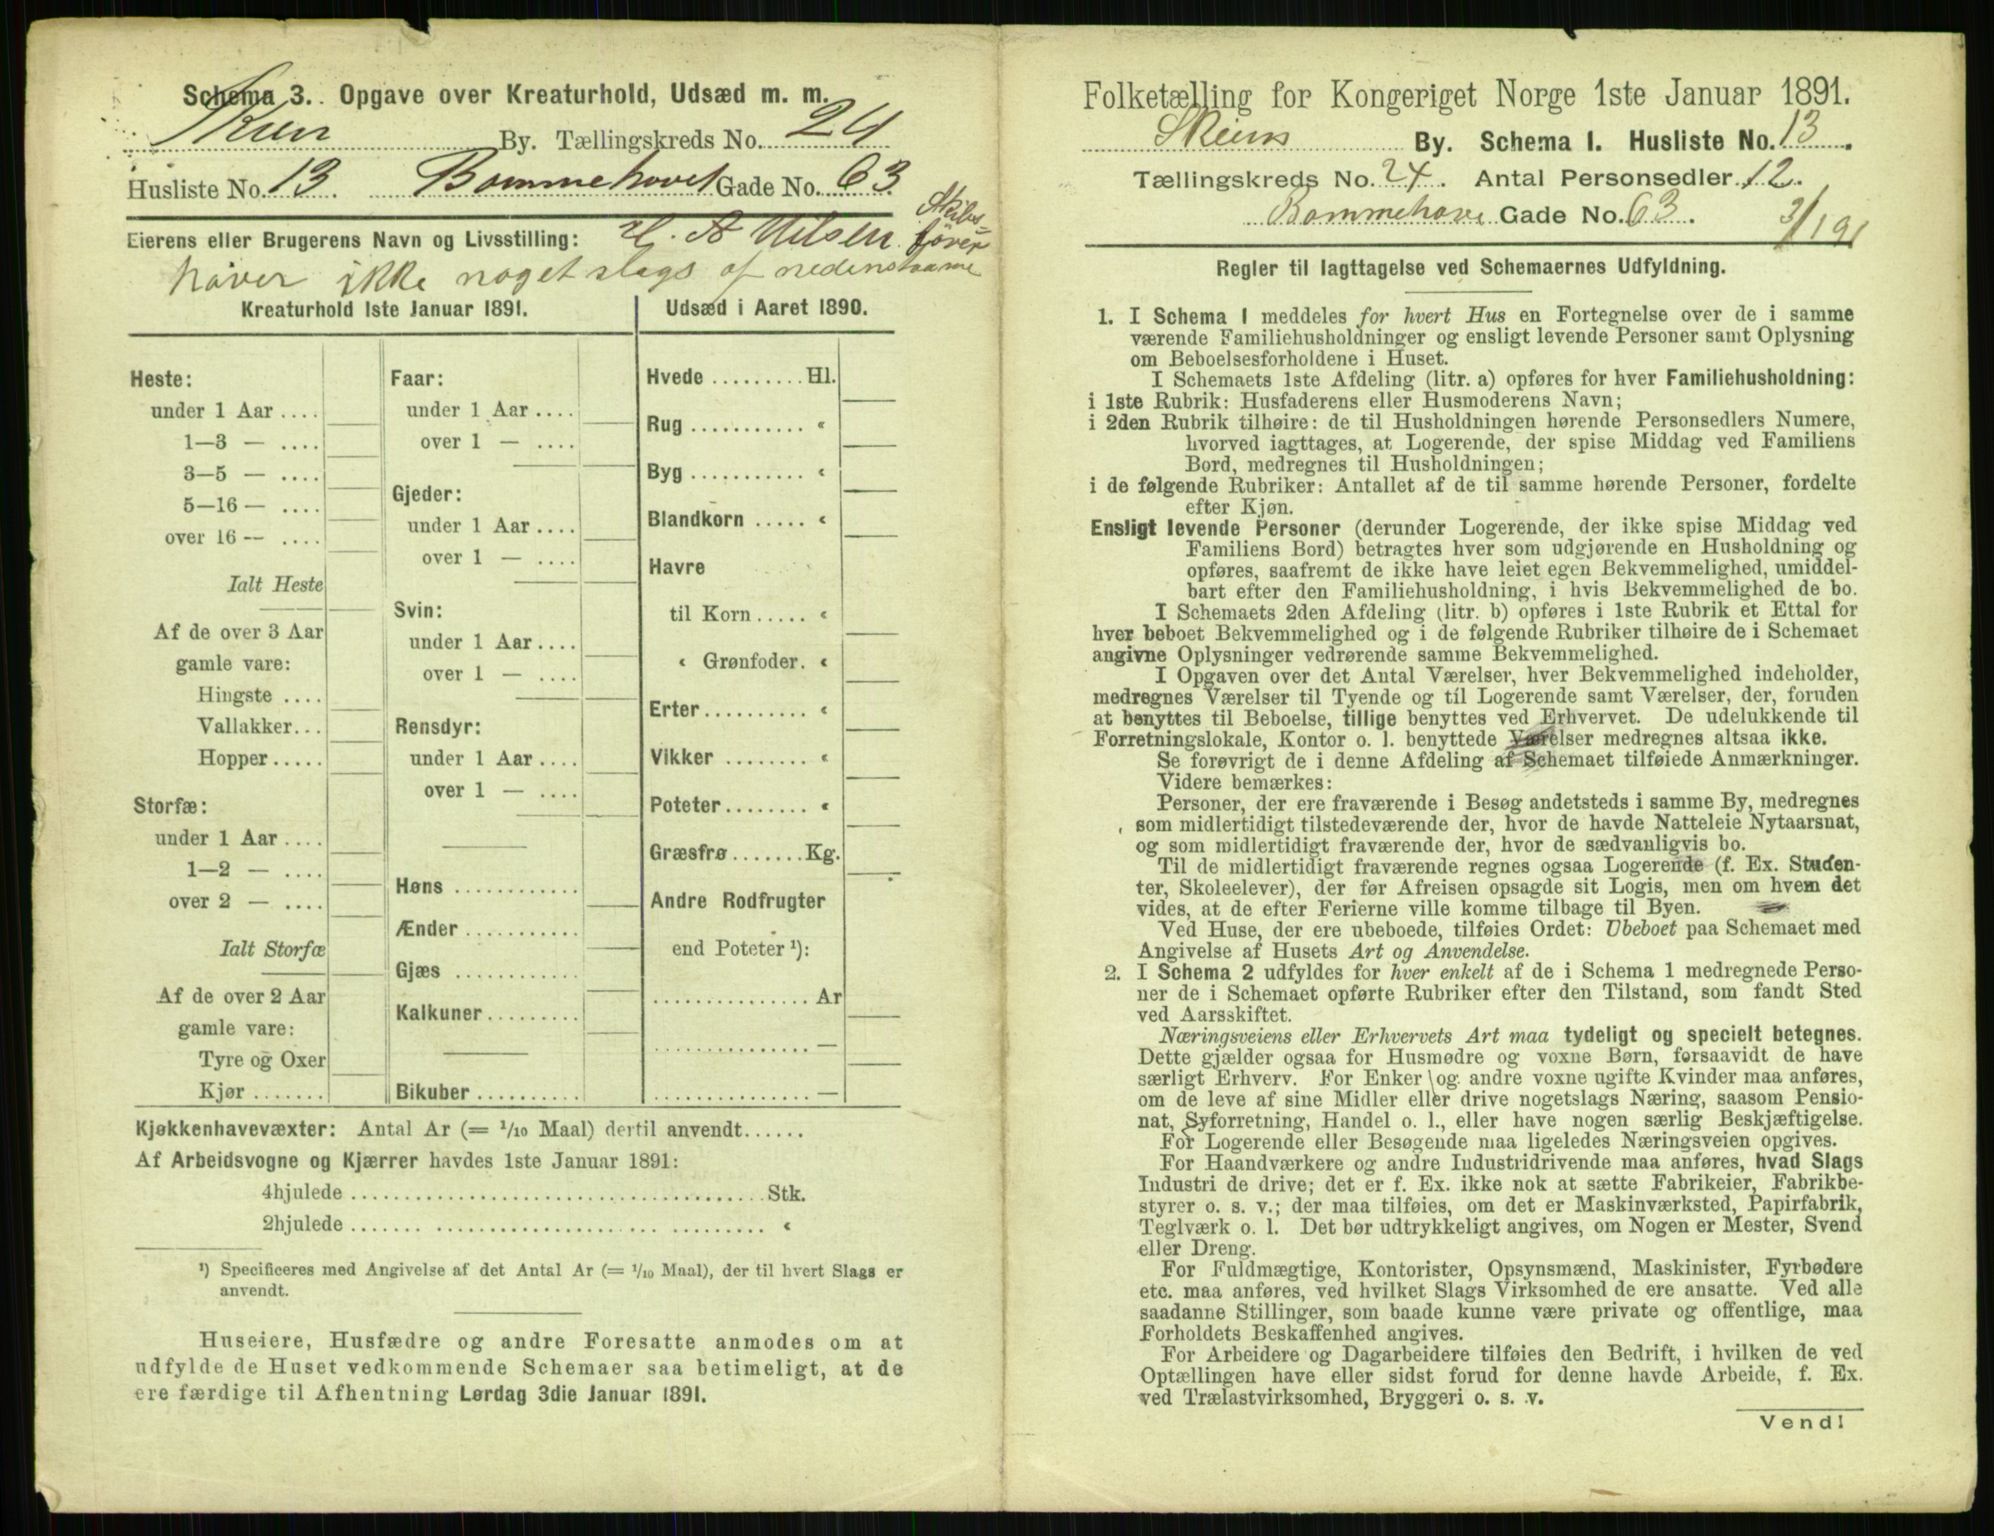 Schema 3. Opgave over Kreaturhold, Udsæd m. m.
Skien By. Tællingskreds No. 24
Husliste No. 13. Bommehovet Gade No. 63.
Eierens eller Brugerens Navn og Livsstilling: H. A Nilsen Skibs=
fører
haver ikke noget slags af nedenstaaende
Kreaturhold 1ste Januar 1891.
Heste:
under 1 Aar ....
1—3 — ....
3—5 — ....
5—16 — ....
over 16 — ....
Ialt Heste
Af de over 3 Aar
gamle vare:
Hingste ....
Vallakker...
Hopper.....
Storfæ:
under 1 Aar ....
1—2 — ....
over 2 — ....
Ialt Storfæ
Af de over 2 Aar
gamle vare:
Tyre og Oxer
Kjør .......
Faar:
under 1 Aar ....
over 1 — ....
Gjeder:
under 1 Aar ....
over 1 — ....
Svin:
under 1 Aar ....
over 1 — ....
Rensdyr:
under 1 Aar ....
over 1 — ....
Høns ............
Ænder ...........
Gjæs ............
Kalkuner.........
Bikuber..........
Udsæd i Aaret 1890.
Hvede .........Hl.
Rug ........... «
Byg ........... «
Blandkorn ..... «
Havre
til Korn ..... «
« Grønfoder. «
Erter.......... «
Vikker ........ «
Poteter........ «
Græsfrø.......Kg.
Andre Rodfrugter
end Poteter ¹):
...............Ar
...............—
...............—
Kjøkkenhavevæxter: Antal Ar (= 1/10 Maal) dertil anvendt......
Af Arbeidsvogne og Kjærrer havdes 1ste Januar 1891:
4hjulede ........................................Stk.
2hjulede ........................................ «
¹) Specificeres med Angivelse af det Antal Ar (= 1/10 Maal), der til hvert Slags er
anvendt.
Huseiere, Husfædre og andre Foresatte anmodes om at
udfylde de Huset vedkommende Schemaer saa betimeligt, at de
ere færdige til Afhentning Lørdag 3die Januar 1891.
Folketælling for Kongeriget Norge 1ste Januar 1891.
Skiens By. Schema I. Husliste No. 13.
Tællingskreds No. 24. Antal Personsedler 12.
Bommehove Gade No. 63. 3/1 91
Regler til Iagttagelse ved Schemaernes Udfyldning.
1. I Schema 1 meddeles for hvert Hus en Fortegnelse over de i samme
værende Familiehusholdninger og ensligt levende Personer samt Oplysning
om Beboelsesforholdene i Huset.
I Schemaets 1ste Afdeling (litr. a) opføres for hver Familiehusholdning:
i 1ste Rubrik: Husfaderens eller Husmoderens Navn;
i 2den Rubrik tilhøire: de til Husholdningen hørende Personsedlers Numere,
hvorved iagttages, at Logerende, der spise Middag ved Familiens
Bord, medregnes til Husholdningen;
i de følgende Rubriker: Antallet af de til samme hørende Personer, fordelte
efter Kjøn.
Ensligt levende Personer (derunder Logerende, der ikke spise Middag ved
Familiens Bord) betragtes hver som udgjørende en Husholdning og
opføres, saafremt de ikke have leiet egen Bekvemmelighed, umiddel-
bart efter den Familiehusholdning, i hvis Bekvemmelighed de bo.
I Schemaets 2den Afdeling (litr. b) opføres i 1ste Rubrik et Ettal for
hver beboet Bekvemmelighed og i de følgende Rubriker tilhøire de i Schemaet
angivne Oplysninger vedrørende samme Bekvemmelighed.
I Opgaven over det Antal Værelser, hver Bekvemmelighed indeholder,
medregnes Værelser til Tyende og til Logerende samt Værelser, der, foruden
at benyttes til Beboelse, tillige benyttes ved Erhvervet. De udelukkende til
Forretningslokale, Kontor o. l. benyttede Værelser medregnes altsaa ikke.
Se forøvrigt de i denne Afdeling af Schemaet tilføiede Anmærkninger.
Videre bemærkes:
Personer, der ere fraværende i Besøg andetsteds i samme By, medregnes
som midlertidigt tilstedeværende der, hvor de havde Natteleie Nytaarsnat,
og som midlertidigt fraværende der, hvor de sædvanligvis bo.
Til de midlertidigt fraværende regnes ogsaa Logerende (f. Ex. Studen-
ter, Skoleelever), der før Afreisen opsagde sit Logis, men om hvem det
vides, at de efter Ferierne ville komme tilbage til Byen.
Ved Huse, der ere ubeboede, tilføies Ordet: Ubeboet paa Schemaet med
Angivelse af Husets Art og Anvendelse.
2. I Schema 2 udfyldes for hver enkelt af de i Schema 1 medregnede Perso-
ner de i Schemaet opførte Rubriker efter den Tilstand, som fandt Sted
ved Aarsskiftet.
Næringsveiens eller Erhvervets Art maa tydeligt og specielt betegnes.
Dette gjælder ogsaa for Husmødre og voxne Børn, forsaavidt de have
særligt Erhverv. For Enker og andre voxne ugifte Kvinder maa anføres,
om de leve af sine Midler eller drive nogetslags Næring, saasom Pensio-
nat, Syforretning, Handel o. l., eller have nogen særlig Beskjæftigelse.
For Logerende eller Besøgende maa ligeledes Næringsveien opgives.
For Haandværkere og andre Industridrivende maa anføres, hvad Slags
Industri de drive; det er f. Ex. ikke nok at sætte Fabrikeier, Fabrikbe-
styrer o. s. v.; der maa tilføies, om det er Maskinværksted, Papirfabrik,
Teglværk o. l. Det bør udtrykkeligt angives, om Nogen er Mester, Svend
eller Dreng.
For Fuldmægtige, Kontorister, Opsynsmænd, Maskinister, Fyrbødere
etc. maa anføres, ved hvilket Slags Virksomhed de ere ansatte. Ved alle
saadanne Stillinger, som baade kunne være private og offentlige, maa
Forholdets Beskaffenhed angives.
For Arbeidere og Dagarbeidere tilføies den Bedrift, i hvilken de ved
Optællingen have eller sidst forud for denne havde Arbeide, f. Ex.
ved Trælastvirksomhed, Bryggeri o. s. v.
Vend!